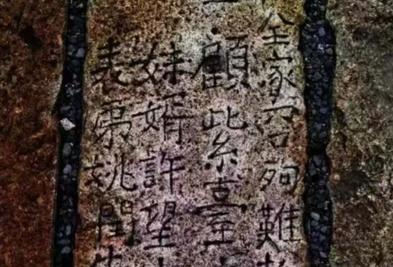 全家殉難
顧紫臺
妹婿許望
表弟姚閏